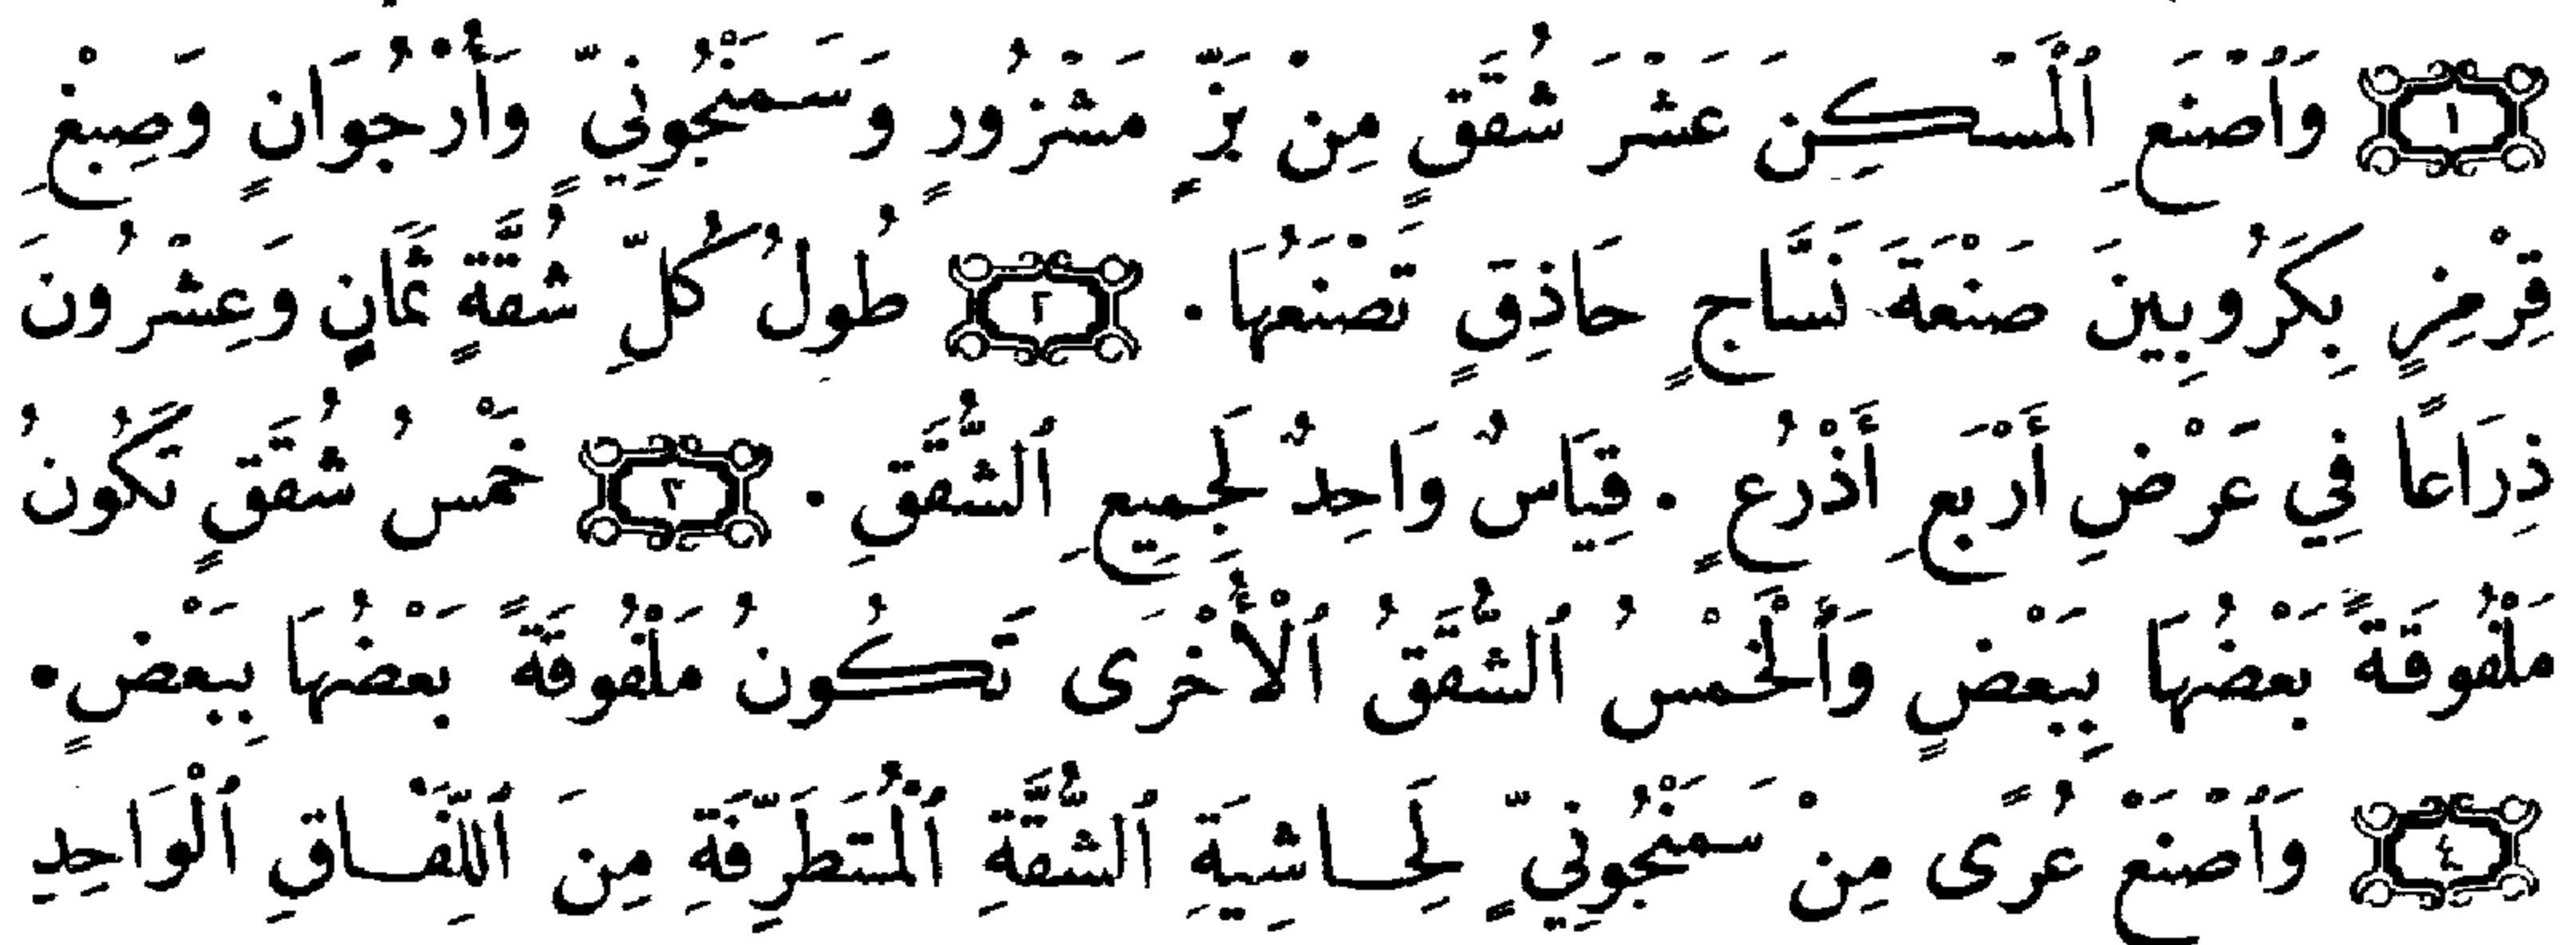 ١ وَٱصْنَعِ ٱلْمَسْكِنَ عَشْرَ شُقَقٍ مِنْ بَزٍّ مَشْزُورٍ وَسَمَنْجُونِيٍّ وَأُرْجُوَانٍ وَصِبْغِ
قِرْمِزٍ بِكَرُوبِينَ صَنْعَةَ نَسَّاجٍ حَاذِقٍ تَصْنَعُهَا. ٢ طُولُ كُلِّ شُقَّةٍ ثَمَانٍ وَعِشْرُونَ
ذِرَاعًا فِي عَرْضِ أَرْبَعِ أَذْرُعٍ. قِيَاسٌ وَاحِدٌ لِجَمِيعِ ٱلشُّقَقِ. ٣ خَمْسُ شُقَقٍ تَكُونُ
مَلْفُوقَةً بَعْضُهَا بِبَعْضٍ وَٱلْخَمْسُ ٱلشُّقَقُ ٱلْأُخْرَى تَكُونُ مَلْفُوقَةً بَعْضُهَا بِبَعْضٍ.
٤ وَٱصْنَعْ عُرًى مِنْ سَمَنْجُونِيٍّ لِحَاشِيَةِ ٱلشُّقَّةِ ٱلْمُتَطَرِّفَةِ مِنَ ٱللِّفَاقِ ٱلْوَاحِدِ